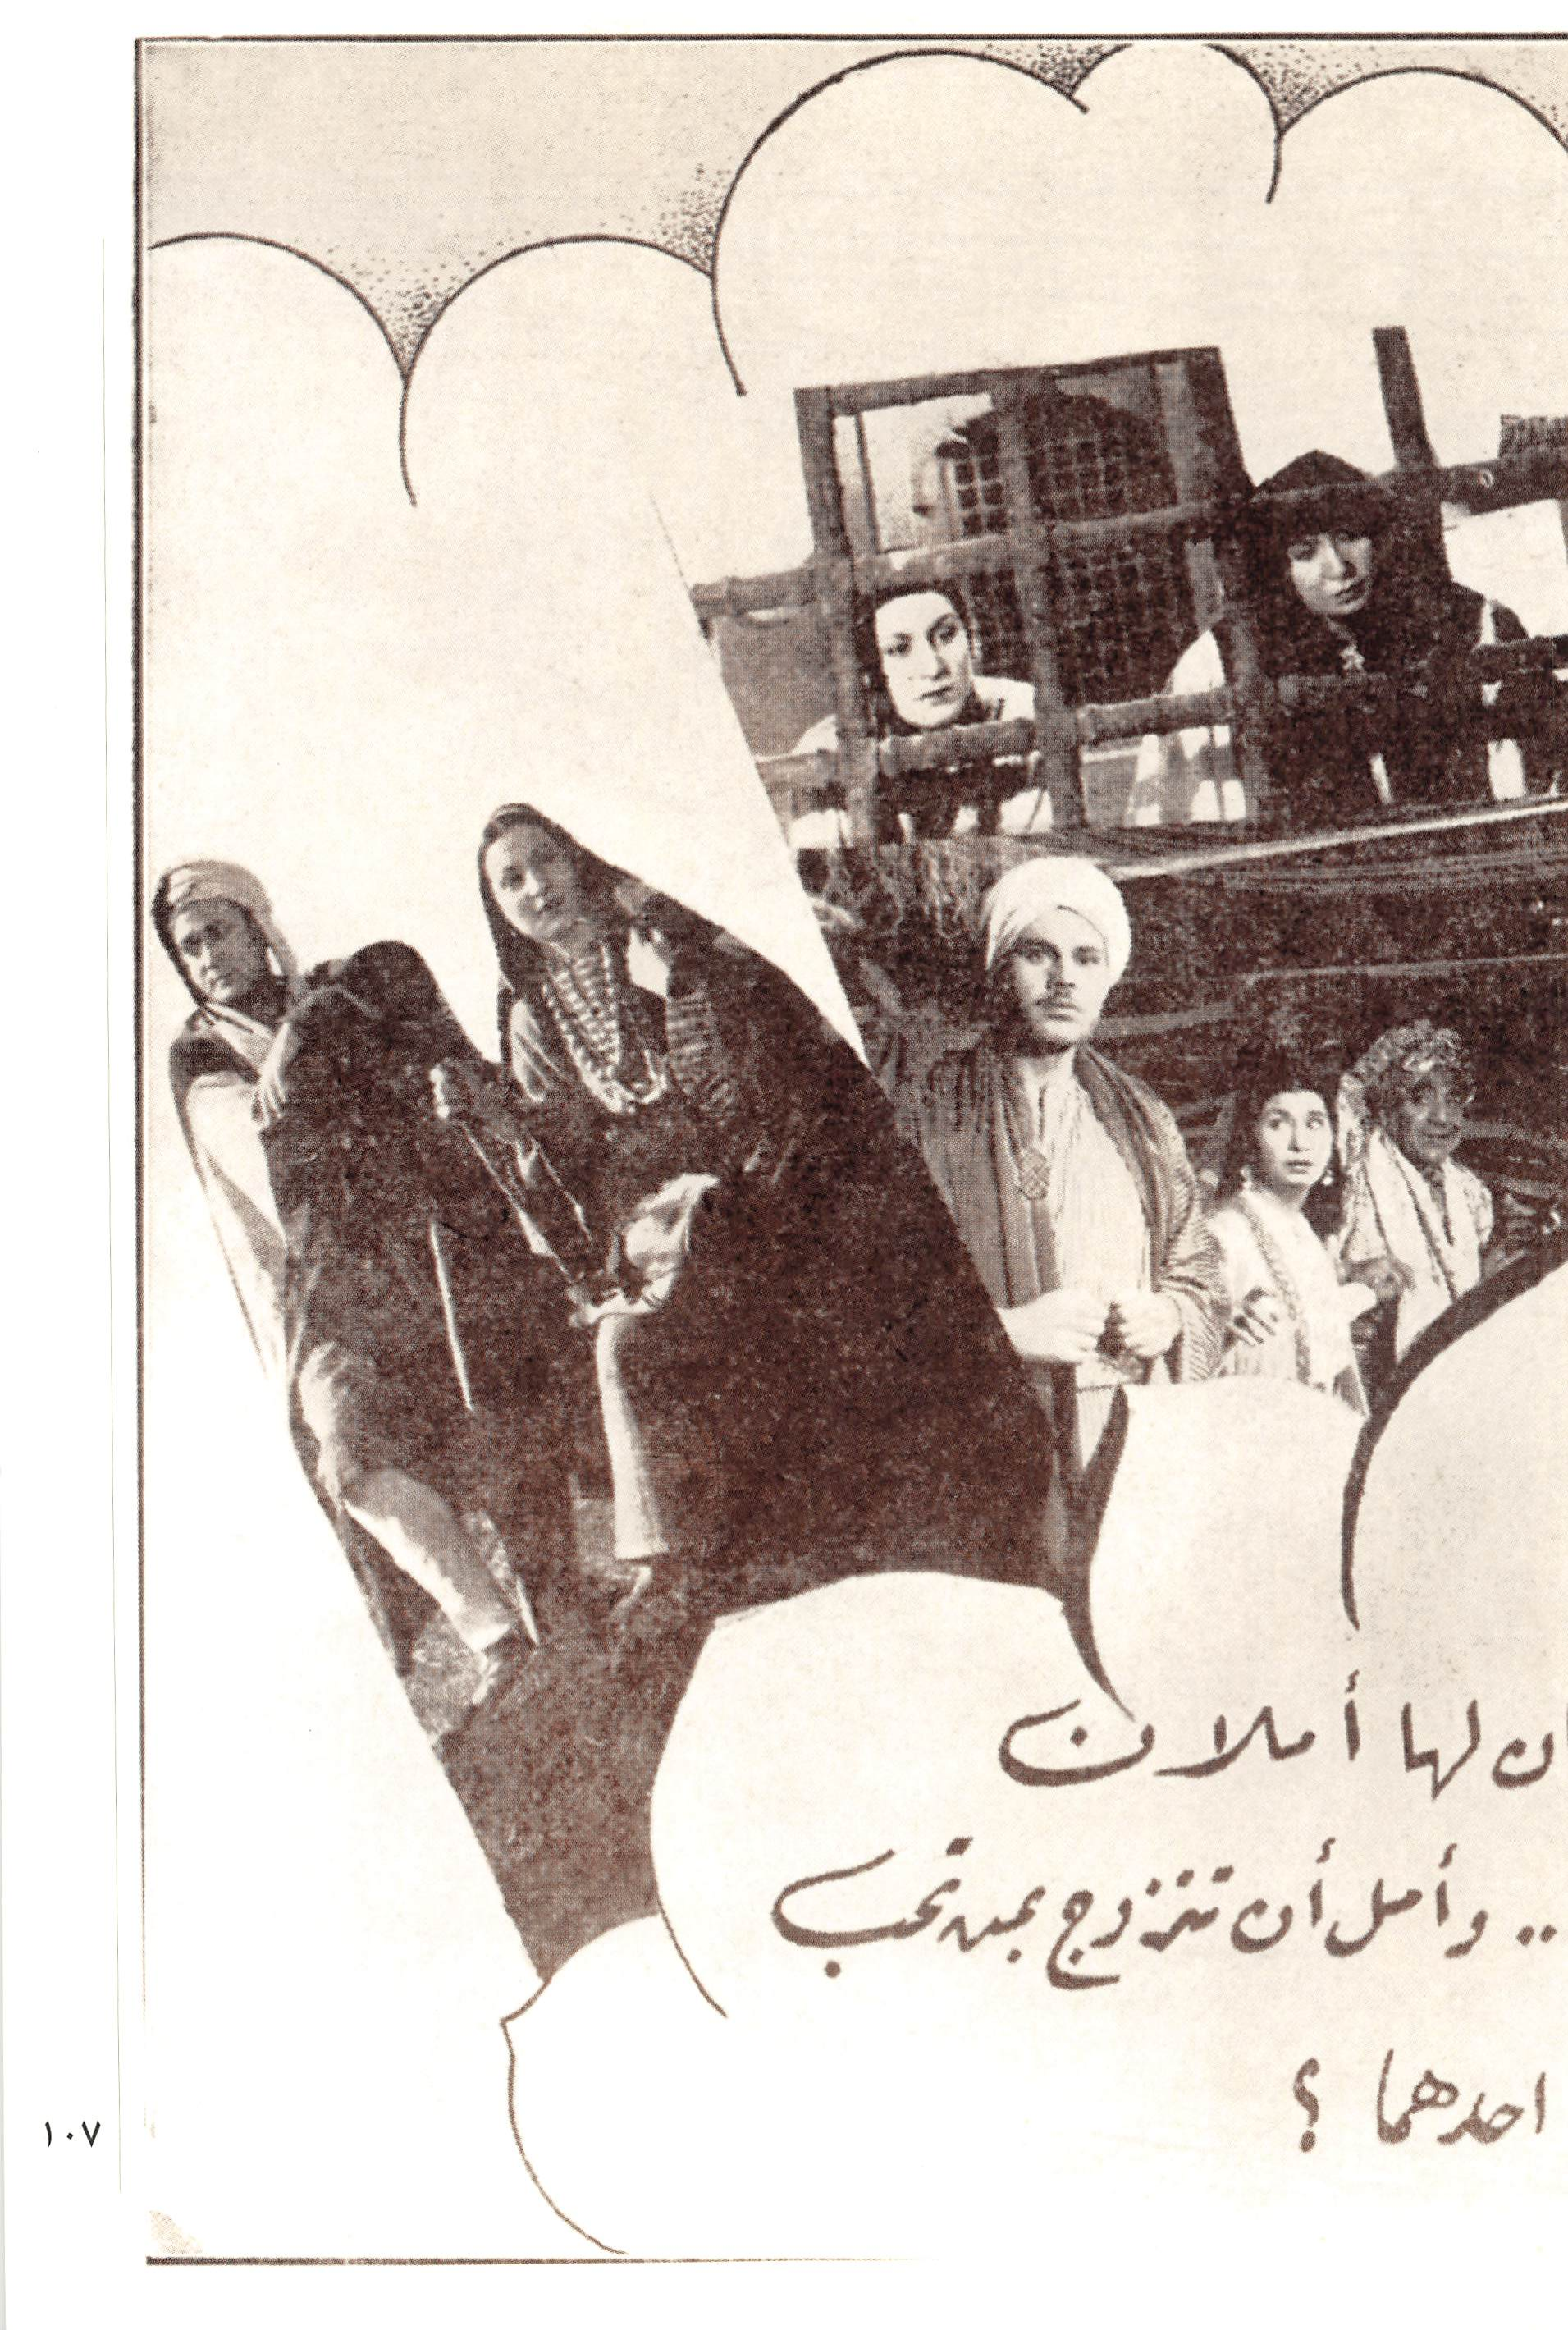 ان لها أملان
.. وأمل أن تتزوج بمن تحب
احدهما ؟
١٠٧